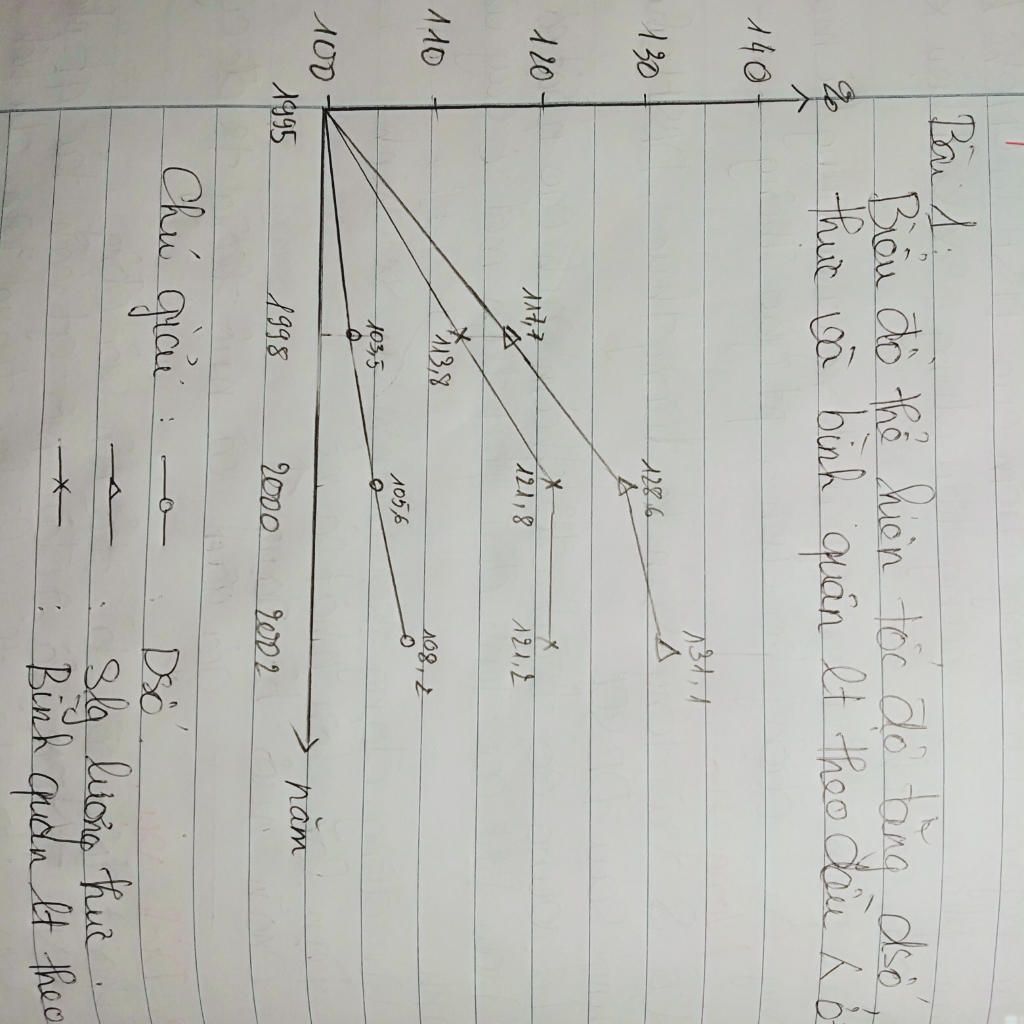 Bài 1:
Biểu đồ thể hiện tốc độ tăng dsố
thực và bình quân lt theo đầu
%
140
130
120
110
100
131,1
128,6
117,7
121,8
121,2
113,8
103,5
105,6
108,2
1995 1998 2000 2002 năm
Chú giải: : Dsố
: Slg lương thực
: Bình quân lt theo